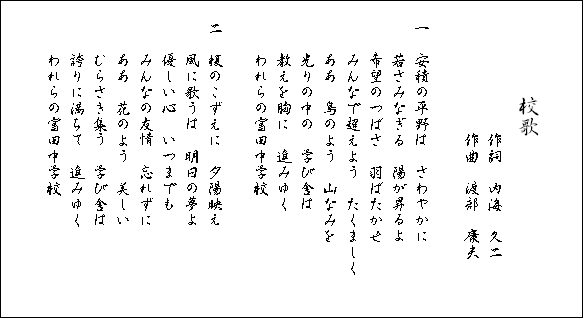 校歌
作詞　内海　久二
作曲　渡部　康夫
一　安積の平野は　さわやかに
若さみなぎる　陽が昇るよ
希望のつばさ　羽ばたかせ
みんなで超えよう　たくましく
ああ　鳥のよう　山なみを
光りの中の　学び舎は
教えを胸に　進みゆく
われらの富田中学校
二　榎のこずえに　夕陽映え
風に歌うは　明日の夢よ
優しい心　いつまでも
みんなの友情　忘れずに
ああ　花のよう　美しい
むらさき集う　学び舎は
誇りに満ちて　進みゆく
われらの富田中学校